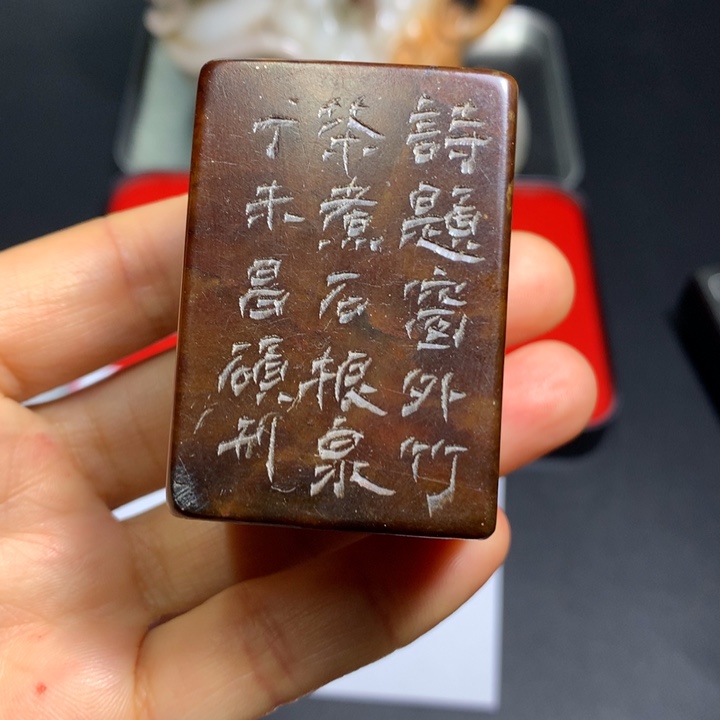 詩題窗外竹
茶煮石根泉
丁未昌碩刊